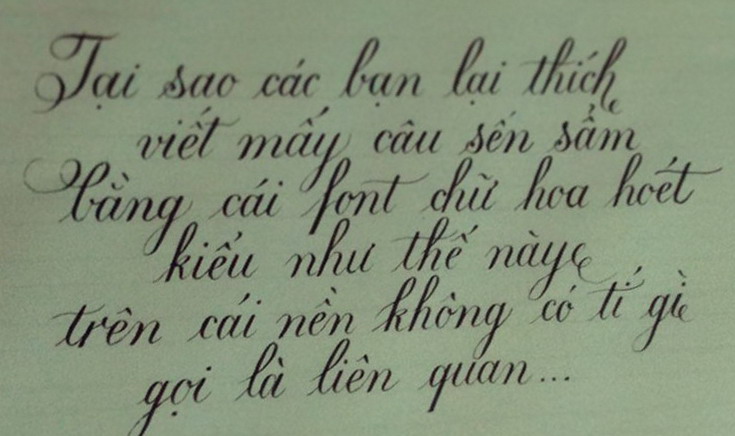 Tại sao các bạn lại thích
viết mấy câu sến sẩm
bằng cái font chữ hoa hoét
kiểu như thế này
trên cái nền không có tí gì
gọi là liên quan...